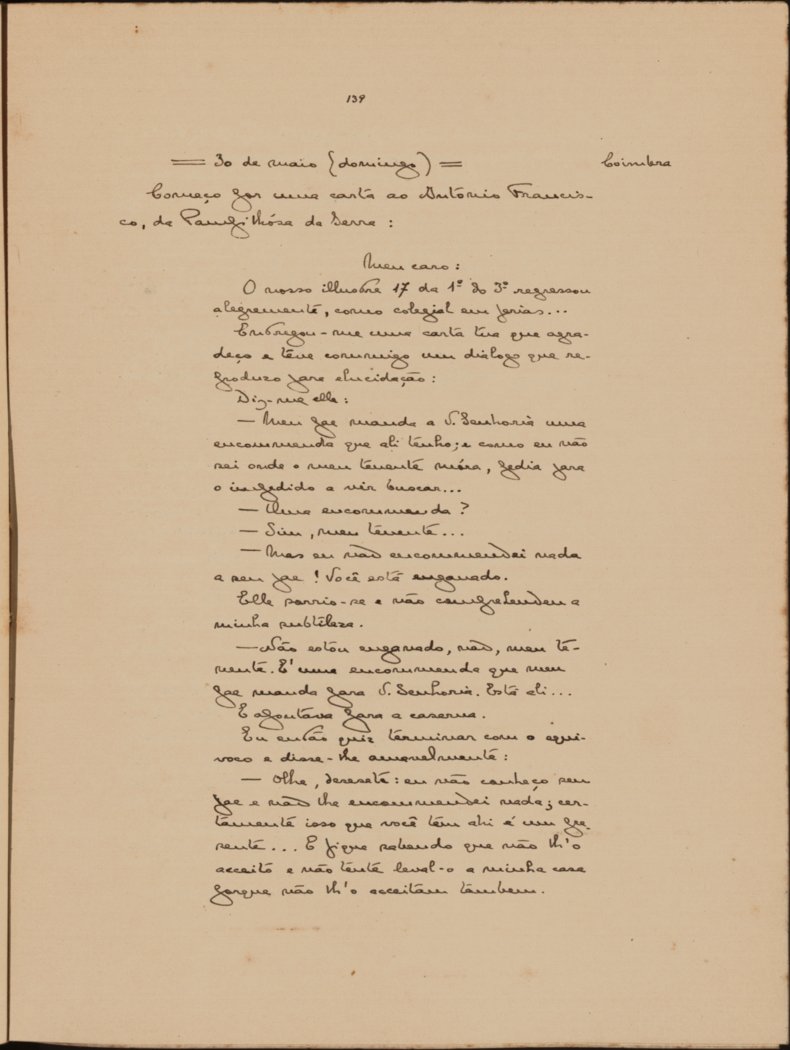 139
== 30 de maio (domingo) == Coimbra
Começo por uma carta ao António Francis-
co, da Pampilhósa da Serra :
Meu caro :
O nosso illustre 17 da 1ª do 3º regressou
alegremente, como colegial em ferias...
Entregou-me uma carta tua que agra-
deço e têve commigo um dialogo que re-
produzo para elucidação :
Diz-me elle :
— Meu pae manda a V. Senhoria uma
encommenda que ali tenho; e como eu não
sei onde o meu tenente móra, pedia para
o impedido a vir buscar...
— Uma encommenda ?
— Sim, meu tenente...
— Mas eu não encommendei nada
a seu pae ! Você está enganado.
Elle sorrio-se e não comprehendeu a
minha subtileza.
— Não estou enganado, não, meu te-
nente. E' uma encommenda que meu
pae manda para V. Senhoria. Está ali...
E apontava para a caserna.
Eu então quiz terminar com o equi-
voco e disse-lhe amavelmente :
— Olhe, desesete : eu não conheço seu
pae e não lhe encommendei nada; cer-
tamente isso que você têm ahi é um pre-
sente... E fique sabendo que não lh'o
acceito e não tente leval-o a minha casa
porque não lh'o acceitam tambem.